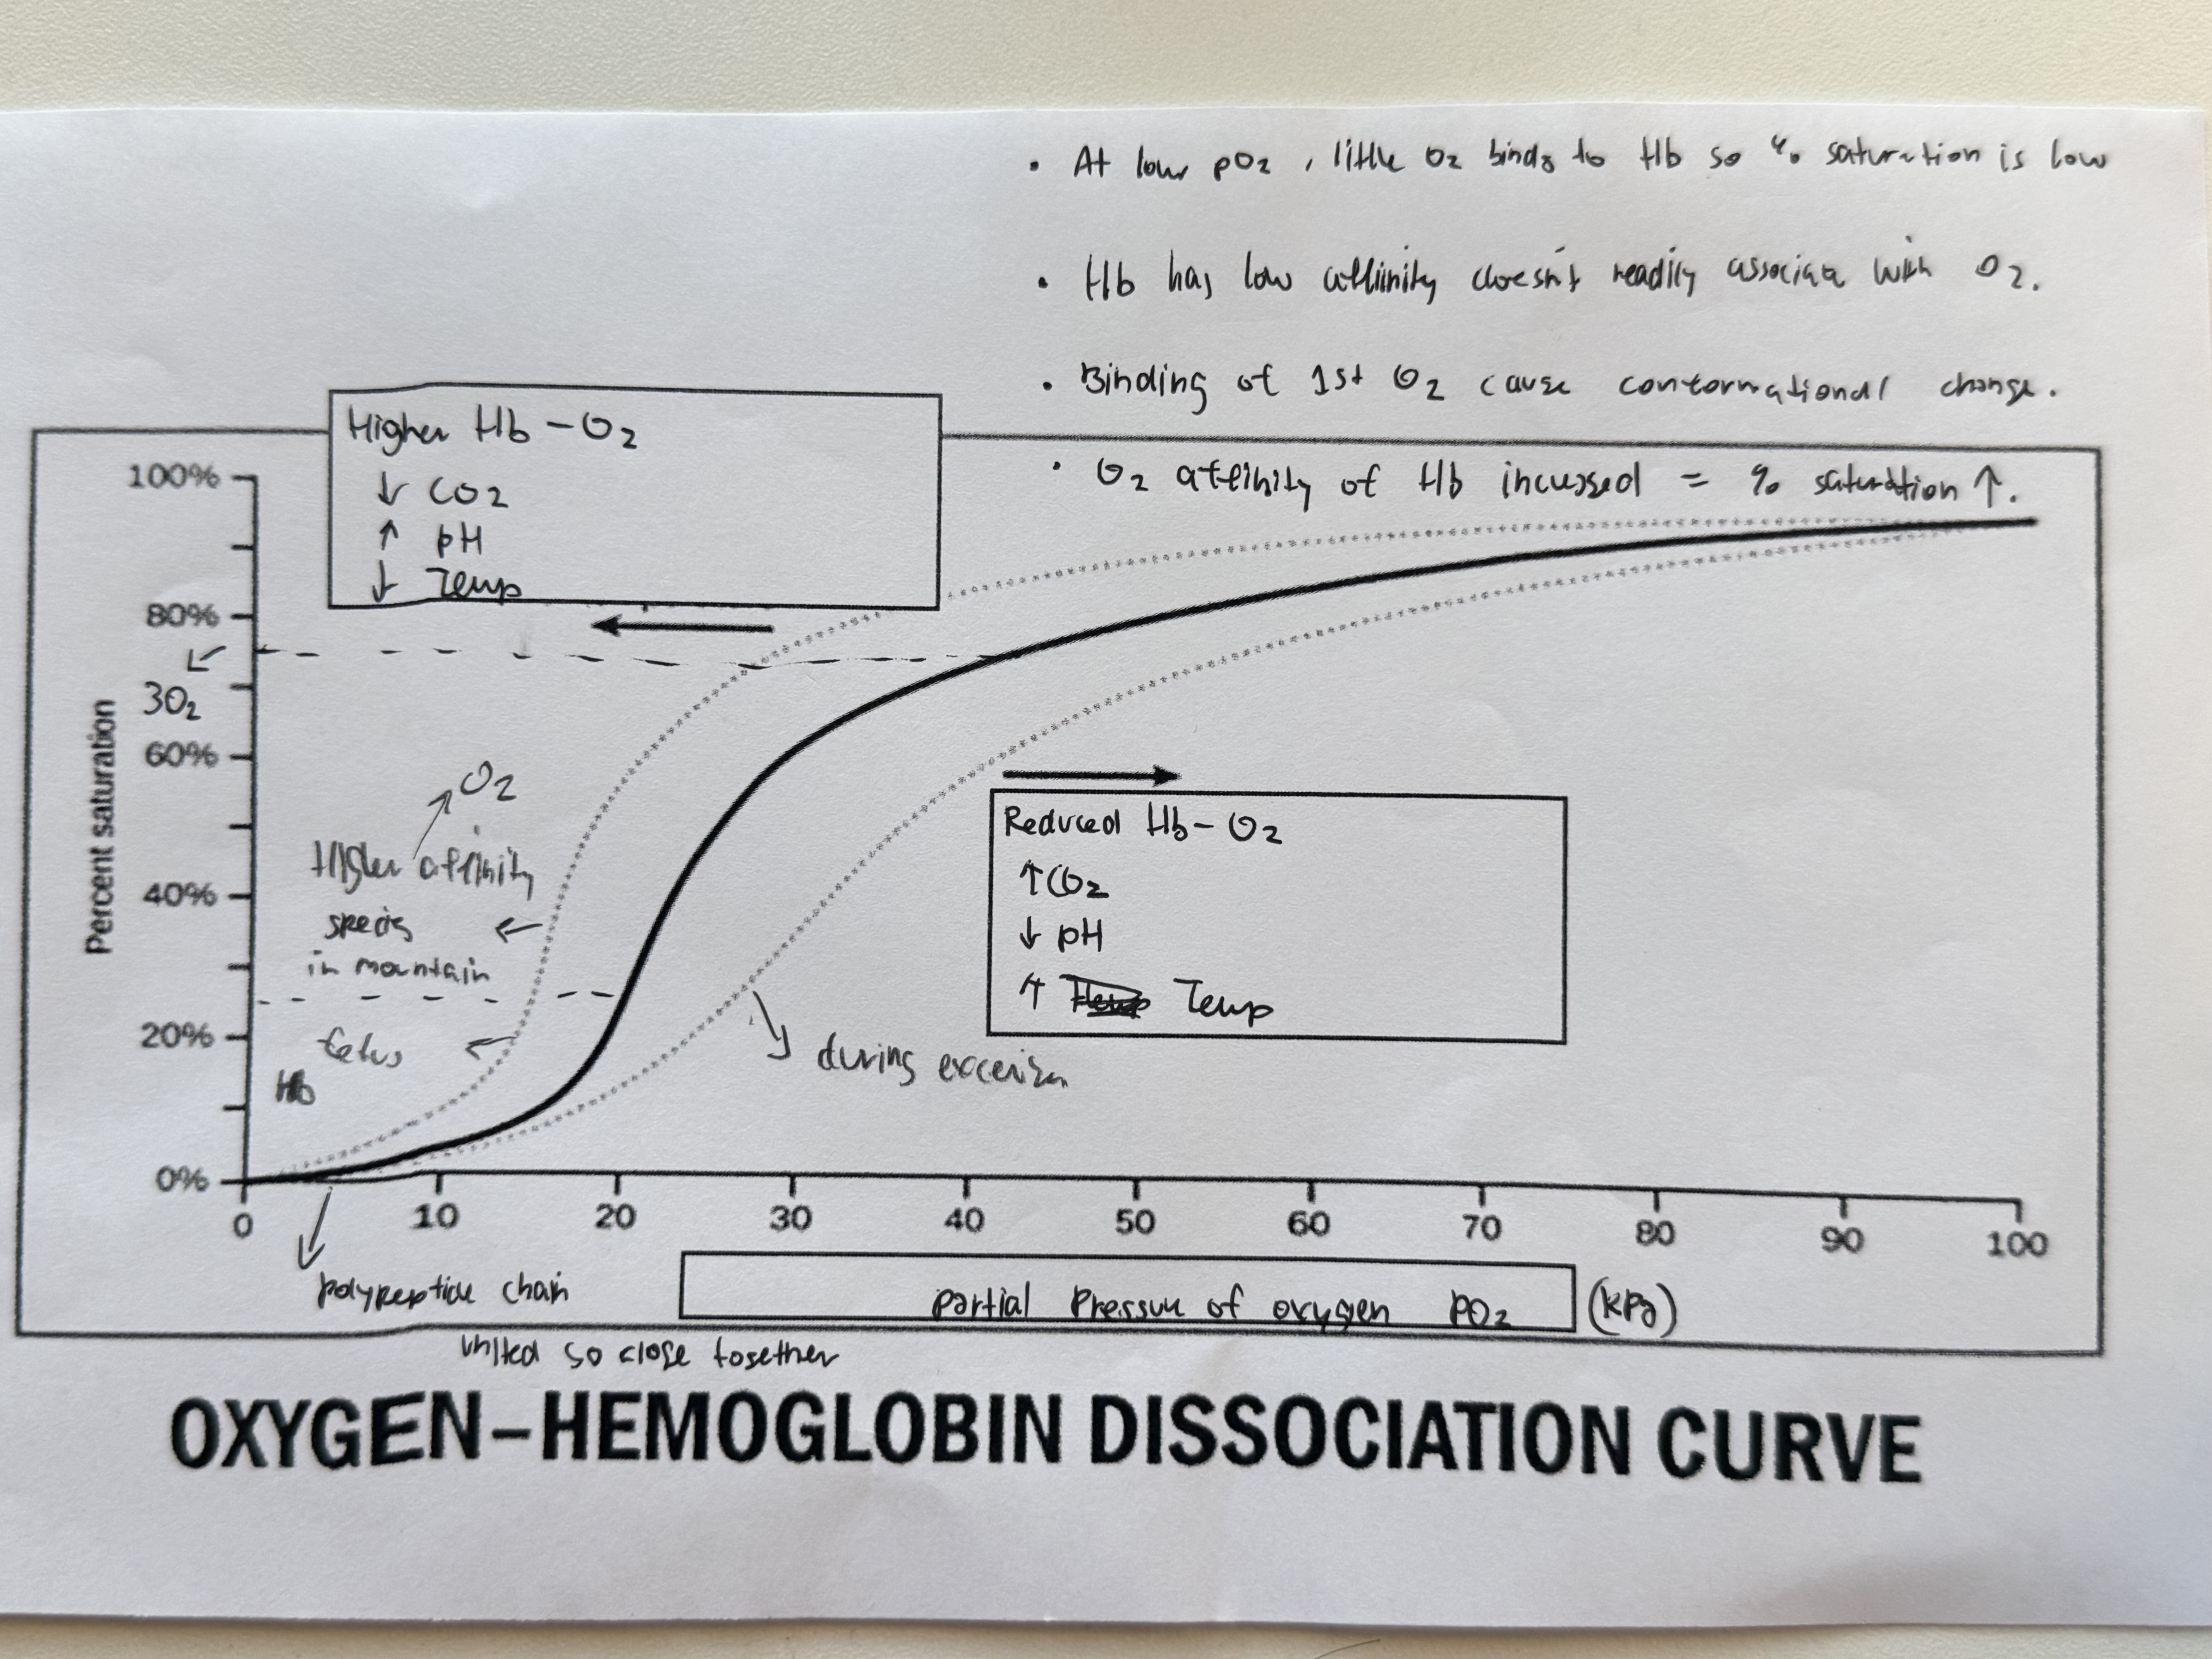 • At low pO2, little O2 binds to Hb so % saturation is low
• Hb has low affinity doesn't readily associate with O2.
• Binding of 1st O2 cause conformational change.
• O2 affinity of Hb incresed = % saturation ↑.
Higher Hb - O2
↓ CO2
↑ pH
↓ Temp
100%
80%
3O2
60%
40%
20%
0%
Percent saturation
O2
Higher affinity
species
in mountain
fetus
Hb
Reduced Hb - O2
↑ CO2
↓ pH
↑ Temp
during
0 10 20 30 40 50 60 70 80 90 100
polypeptide chain
united so close together
partial Pressure of oxygen pO2 (kPa)
OXYGEN-HEMOGLOBIN DISSOCIATION CURVE